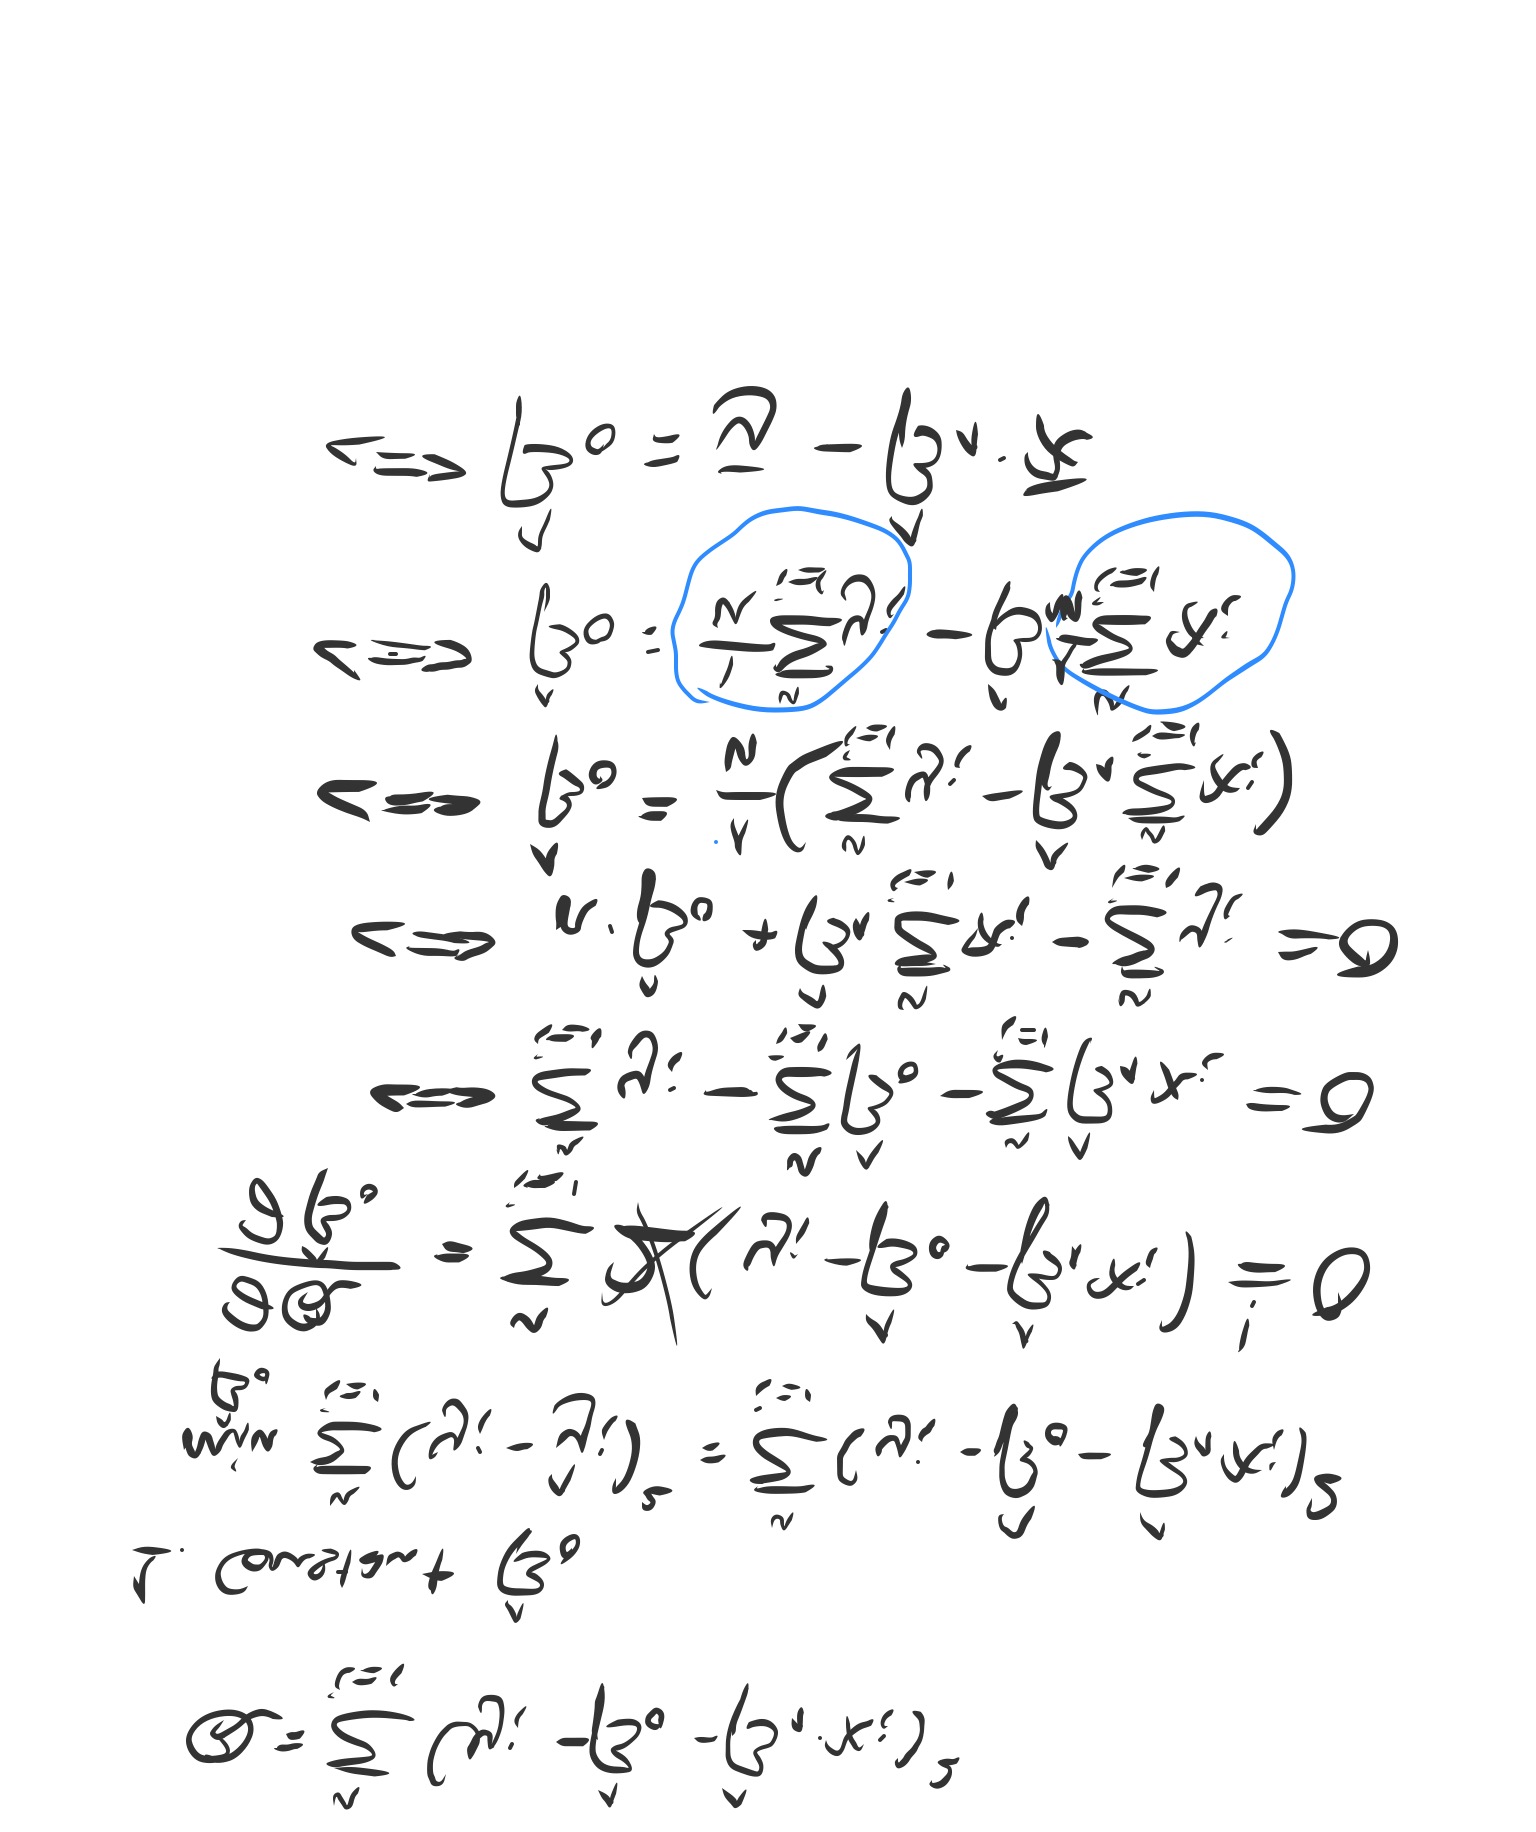 Q = ∑_{i=1}^{n} (y_i - β̂_0 - β̂_1 · x_i)^2
1. Constant β̂_0
min_{β̂_0} ∑_{i=1}^{n} (y_i - ŷ_i)^2 = ∑_{i=1}^{n} (y_i - β̂_0 - β̂_1 x_i)^2
∂Q/∂β̂_0 = ∑_{i=1}^{n} 2 (y_i - β̂_0 - β̂_1 x_i) =! 0
<=> ∑_{i=1}^{n} y_i - ∑_{i=1}^{n} β̂_0 - ∑_{i=1}^{n} β̂_1 x_i = 0
<=> n · β̂_0 + β̂_1 ∑_{i=1}^{n} x_i - ∑_{i=1}^{n} y_i = 0
<=> β̂_0 = 1/n (∑_{i=1}^{n} y_i - β̂_1 ∑_{i=1}^{n} x_i)
<=> β̂_0 = 1/n ∑_{i=1}^{n} y_i - β̂ 1/n ∑_{i=1}^{n} x_i
<=> β̂_0 = ȳ - β̂_1 · x̄